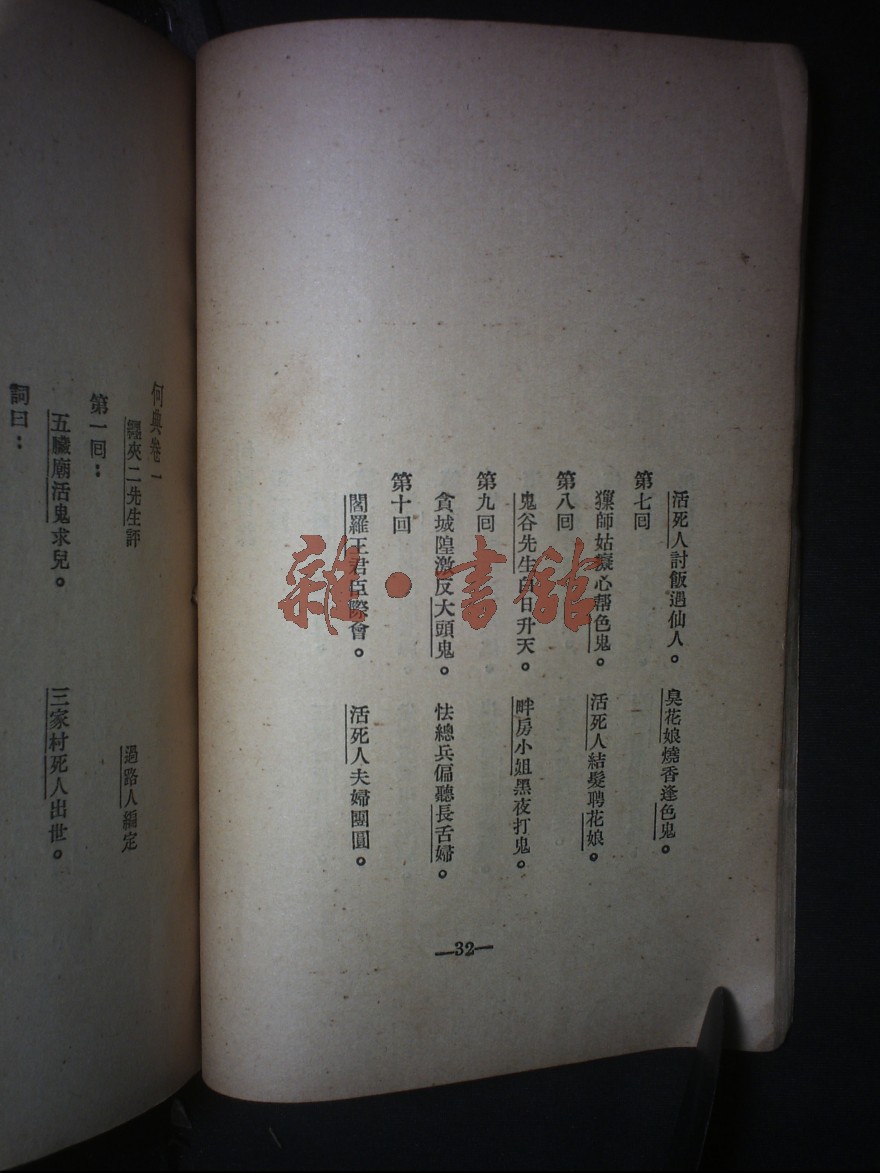 活死人討飯遇仙人。 臭花娘燒香逢色鬼。
第七回
騍師姑癡心帮色鬼。 活死人結髮聘花娘。
第八回
鬼谷先生白日升天。 畔房小姐黑夜打鬼。
第九回
貪城隍激反大頭鬼。 怯總兵偏聽長舌婦。
第十回
閻羅王君臣際會。 活死人夫婦團圓。
—32—
何典卷一
纏夾二先生評 過路人編定
第一回：
五臟廟活鬼求兒。 三家村死人出世。
詞曰：
雜·書館